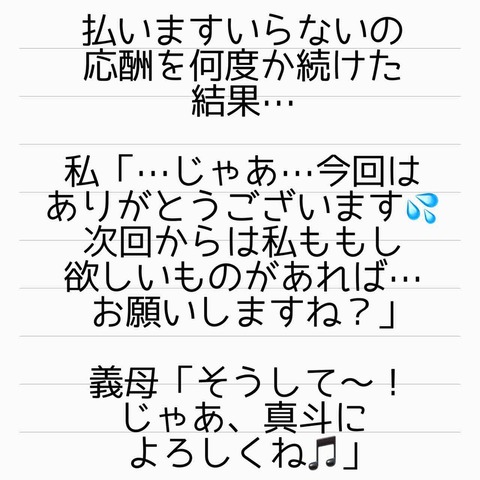 払いますいらないの
応酬を何度か続けた
結果…
私「…じゃあ…今回は
ありがとうございます💦
次回からは私ももし
欲しいものがあれば…
お願いしますね？」
義母「そうして〜！
じゃあ、真斗に
よろしくね🎵」